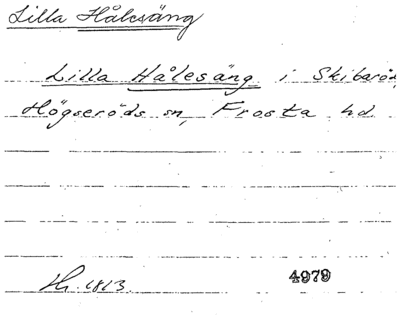 Lilla Hålesäng
Lilla Hålesäng i Skibaröd,
Högseröds sn, Frosta hd
Hr. 1813 4979